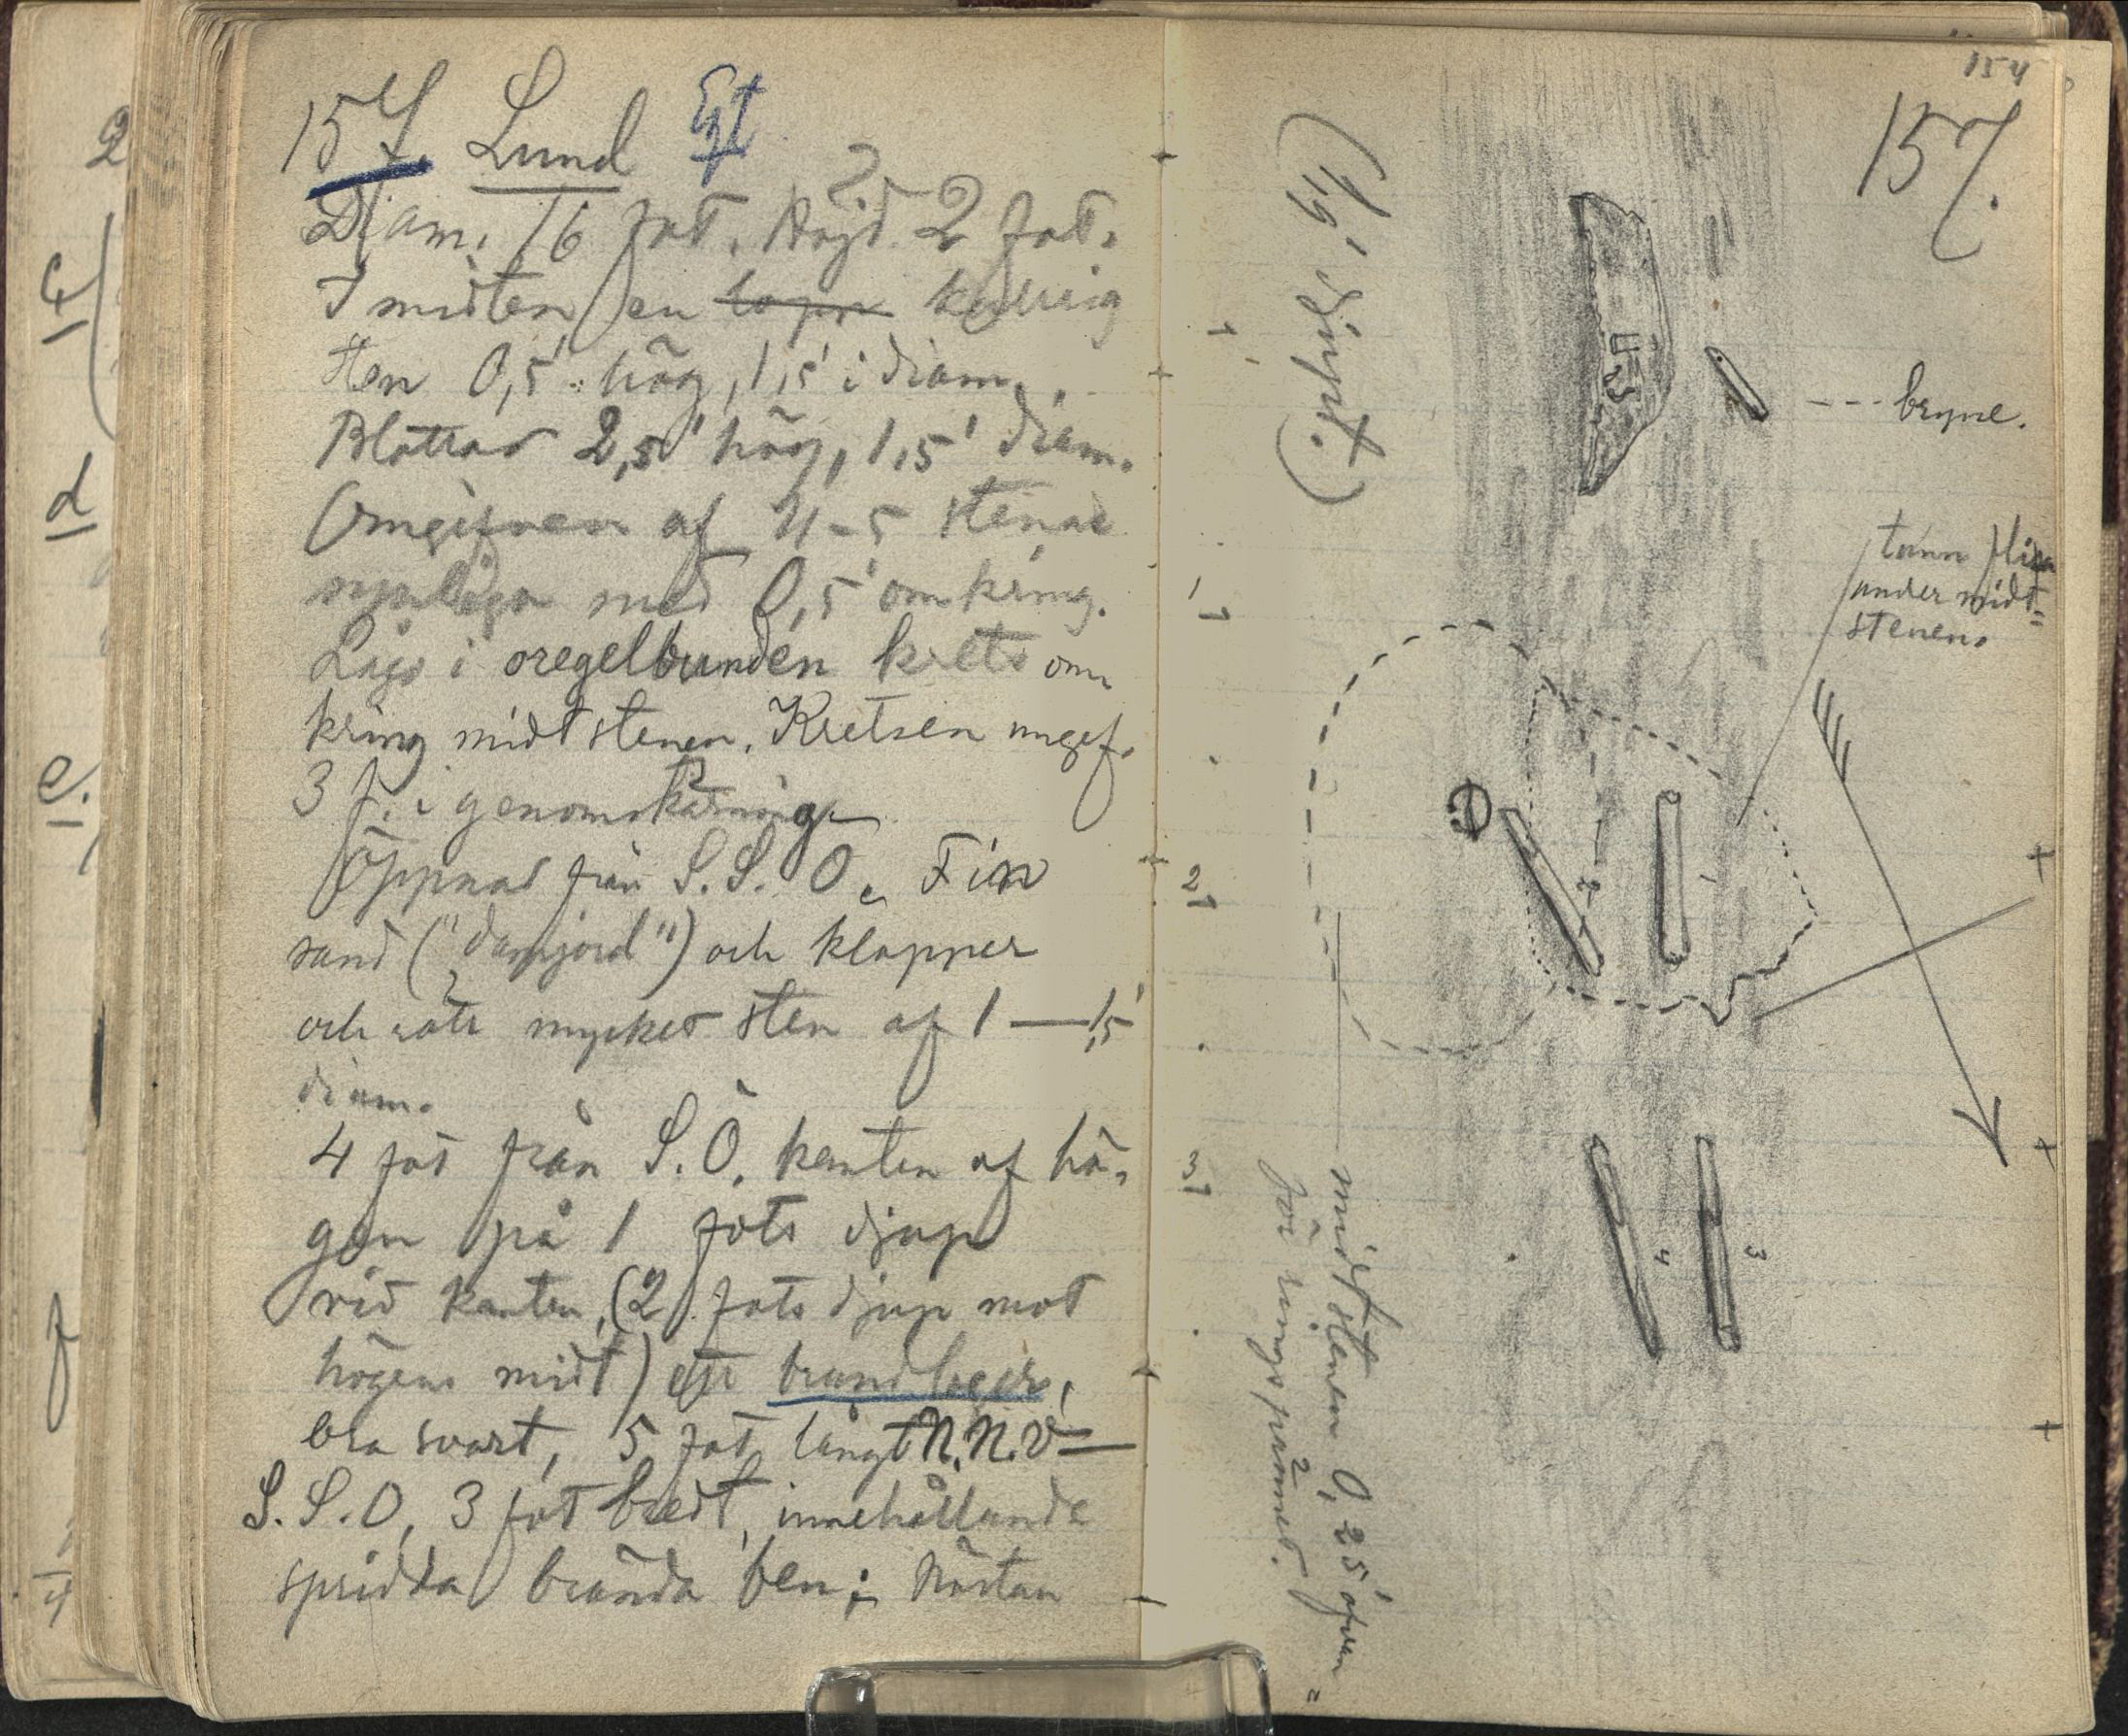 157 Lund
Diam. 16 fot. Höjd 2 fot.
I midten en kullrig
sten 0,5' hög, 1,5' i diam.
Blottad 2,5' hög, 1,5' diam.
Omgifven af 4-5 stenar
synliga med 0,5' omkring.
Lågo i oregelbunden krets om
kring midtstenen. Kretsen ungef.
3 f. i genomskärning.
Öppnad från S.S.O. Fin
sand ("damjord") och klapper
och rätt mycket sten af 1 — 1,5'
diam.
4 fot från S.Ö. kanten af hö-
gen på 1 fots djup
vid kanten, (2 fots djup mot
högens midt) ett brandlager,
bra svart, 5 fot långt N.N.V —
S.S.O, 3 fot bredt, innehållande
spridda brända ben; nästan
154
157.
(1,9' djupt.)
bryne.
tunn flisa
under midt-
stenen.
1
2
3
1
2
3
4
midtstenen 0,25' ofvan-
för ringspännet.
c
d
e.
f